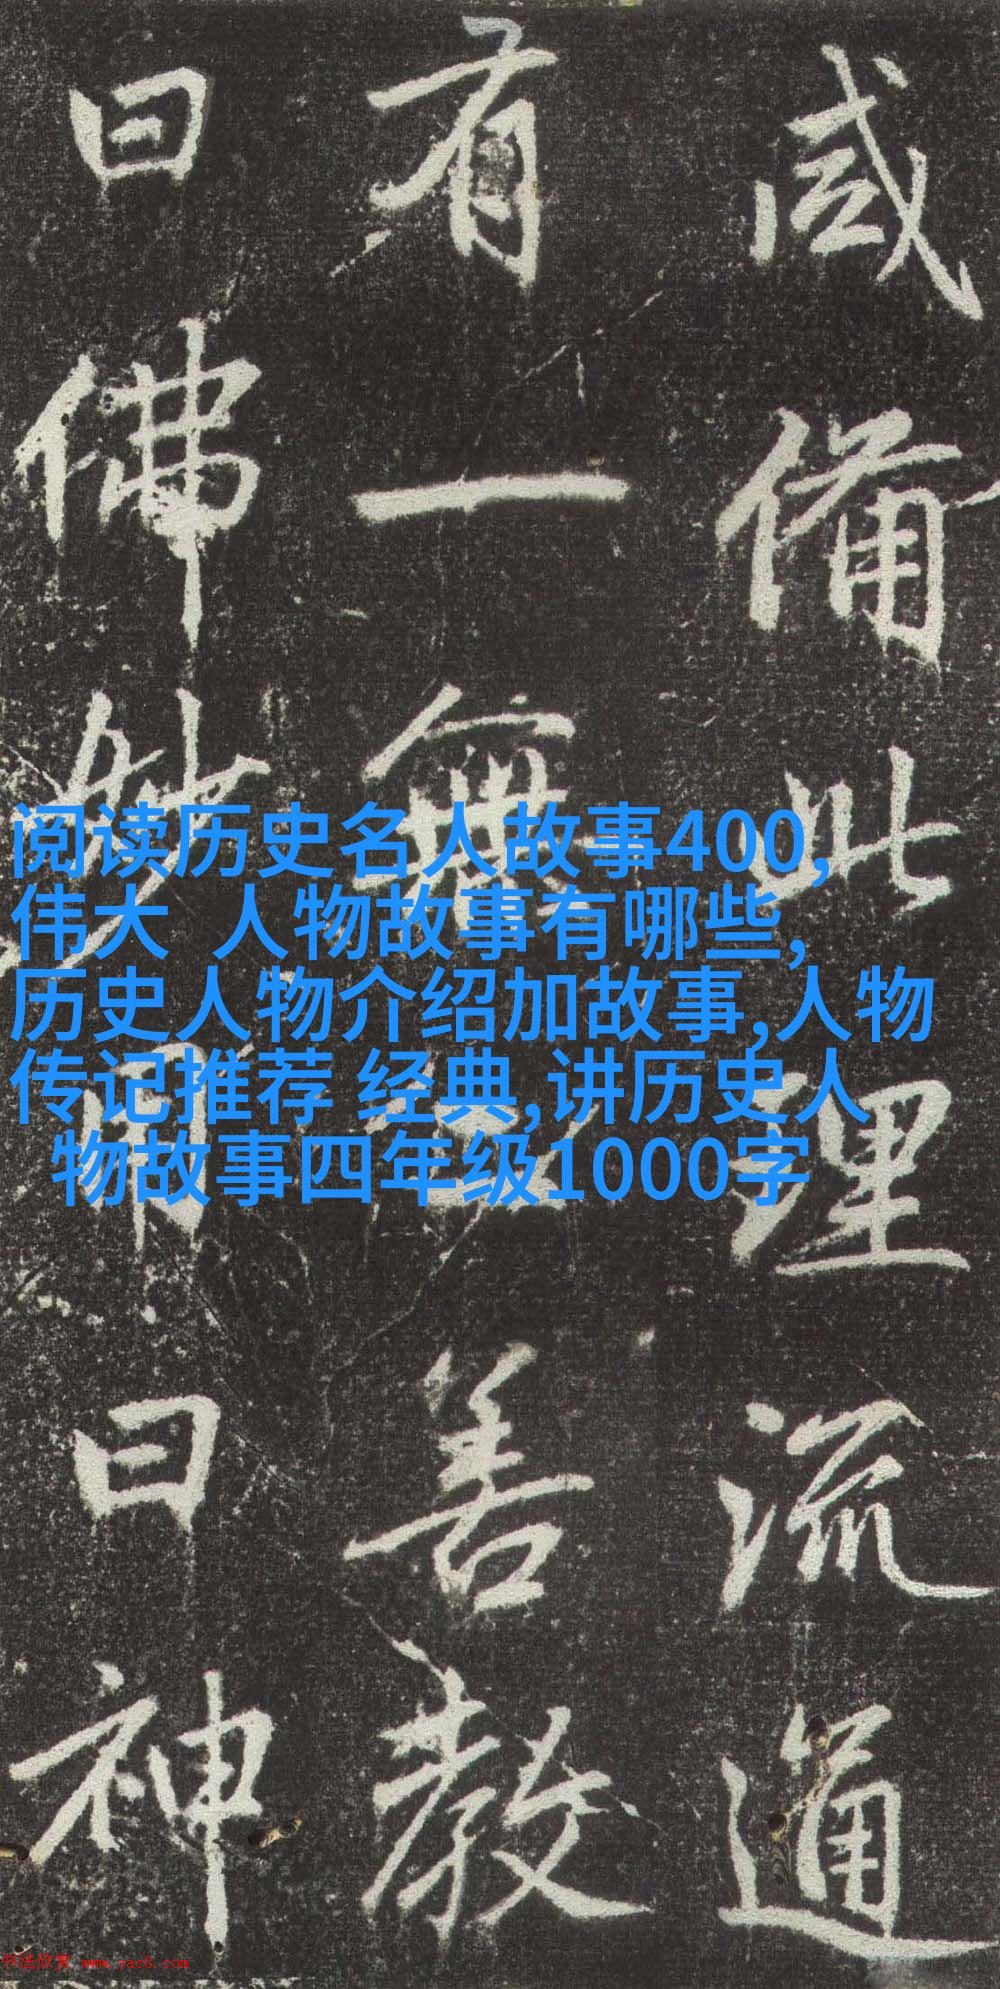 咸備此理流通
有一無善教
曰佛妙用曰神
阅读历史名人故事400,
伟大 人物故事有哪些,
历史人物介绍加故事,人物
传记推荐 经典,讲历史人
物故事四年级1000字
书法欣赏 www.yac8.com